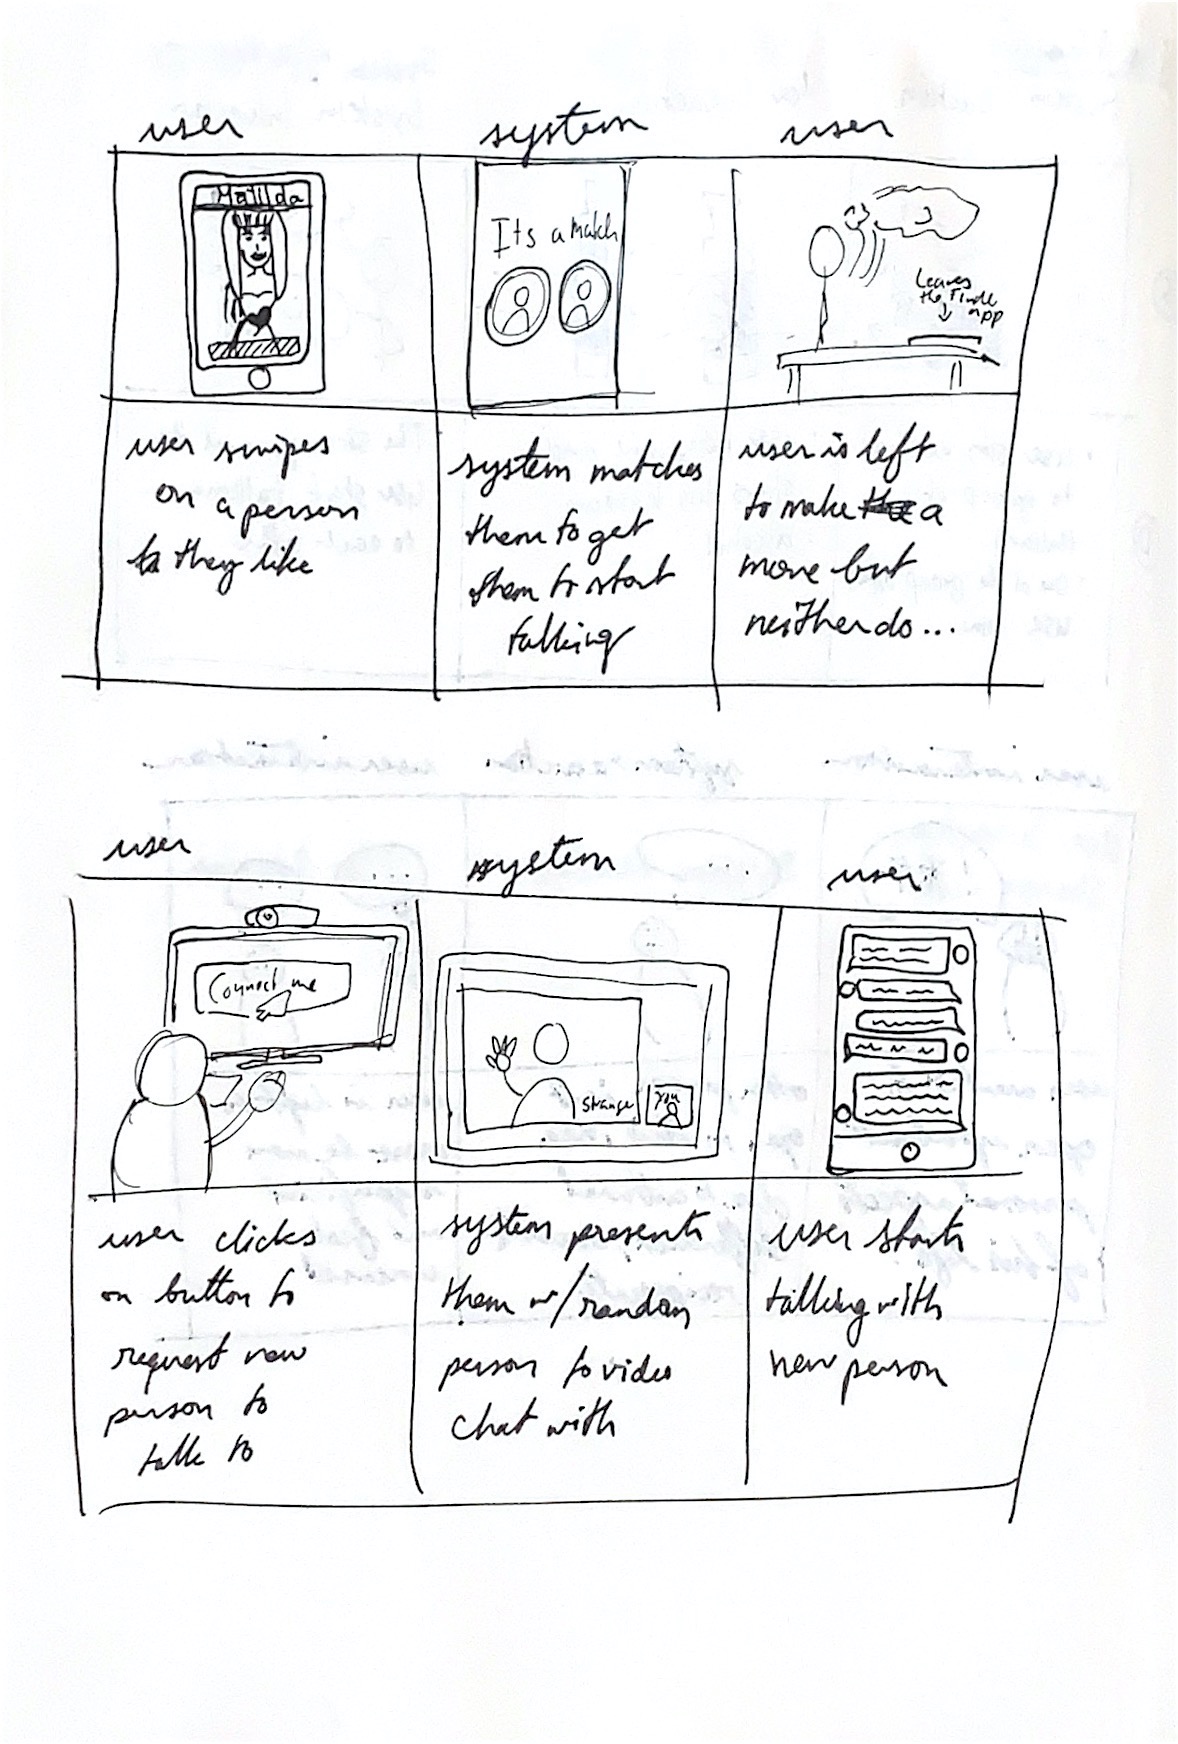 user
system
user
Matilda
Its a match
Leaves
the Tinder
app
user swipes
on a person
they like
system matches
them to get
them to start
talking
user is left
to make a
move but
neither do...
user
system
user
Connect me
stranger
you
user clicks
on button to
request new
person to
talk to
system presents
them w/random
person to video
chat with
user starts
talking with
new person